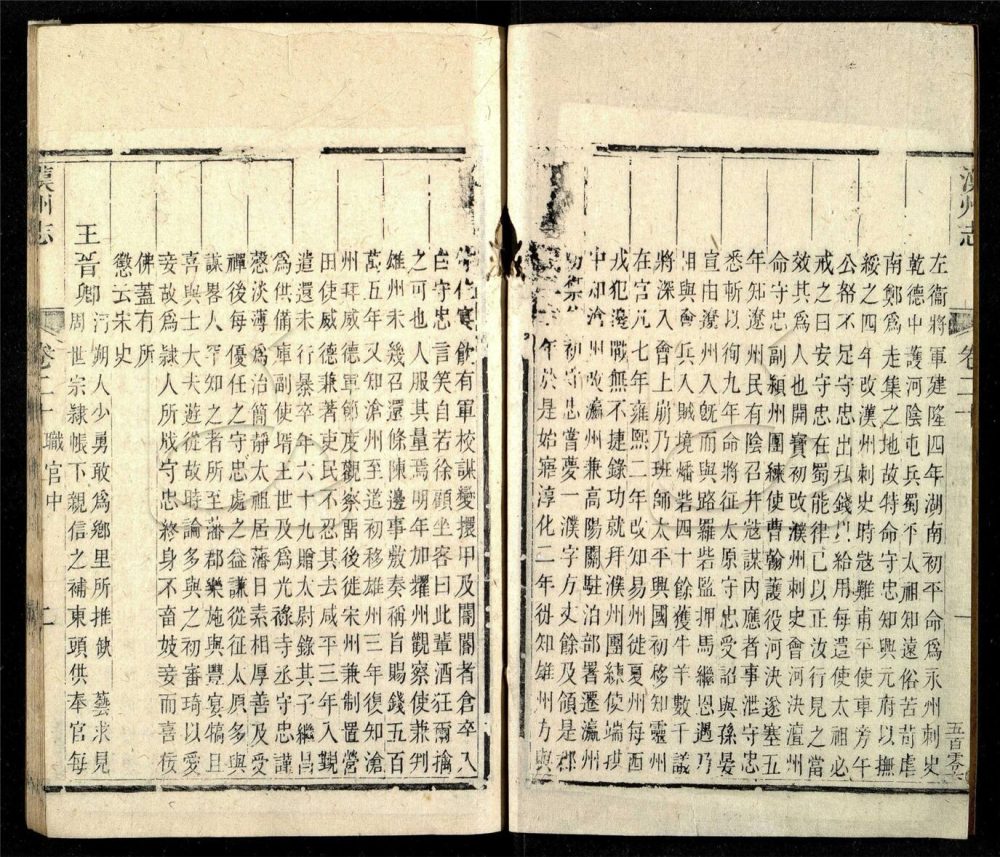 漢州志
卷二十
一
左衞將軍建隆四年湖南初平命爲永州刺史
乾德中護河陰屯兵蜀平太祖知遠俗苦苛虐
南鄭爲走集之地故特命守忠知興元府以撫
綏之四年改漢州刺史時寇難甫平使車旁午
公帑不足守忠出私錢以給用每遣使太祖必
戒之曰安守忠在蜀能律已以正汝行見之當
效其爲人也開寶初改濮州刺史會河決澶州
命守忠副潁州團練使曹翰護役河決遂塞五
年知遼州民有陰召幷寇謀內應者事泄守忠
悉斬以徇九年命將征太原守忠受詔與孫晏
宣由遼州入旣而與路羅砦監押馬繼恩遇乃
相與會兵入賊境燔砦四十餘獲牛羊數千議
將深入會上崩乃班師太平興國初移知靈州
在官凡七年雍熙二年改知易州徙夏州每西
戎犯邊戰無不捷錄功就拜濮州團練使端拱
中知滄州改瀛州兼高陽關駐泊部署遷瀛州
防禦初守忠嘗夢一濮字方丈餘及領是郡
年於是始寤淳化二年徙知雄州方與
飲有軍校謀變擐甲及閽閽者倉卒入
白守忠言笑自若徐顧坐客曰此輩酒狂爾擒
之可也人服其量焉明年加耀州觀察使兼判
雄州未幾召還條陳邊事敷奏稱旨賜錢五百
萬五年又知滄州至道初移雄州三年復知滄
州拜威德軍節度觀察留後徙宋州兼制置營
田使威德兼著吏民不忍其去咸平三年入覲
遣還未行暴卒年六十九贈太尉錄其子繼昌
爲供備庫副使壻王世及爲光祿寺丞守忠謹
慤淡薄爲治簡靜太祖居藩日素相厚善及受
禪後每優任之守忠處之益謙從征太原多與
謀畧人罕知之者所至藩郡樂施與豐宴犒且
喜與士大夫遊從故時論多與之初審琦以愛
妾故爲隷人所戕守忠終身不畜妓妾而喜佞
佛蓋有所
懲云宋史
王晉卿河朔人少勇敢爲鄉里所推　藝求見
周世宗隷帳下親信之補東頭供奉官每
漢州志
卷二十
職官中
二